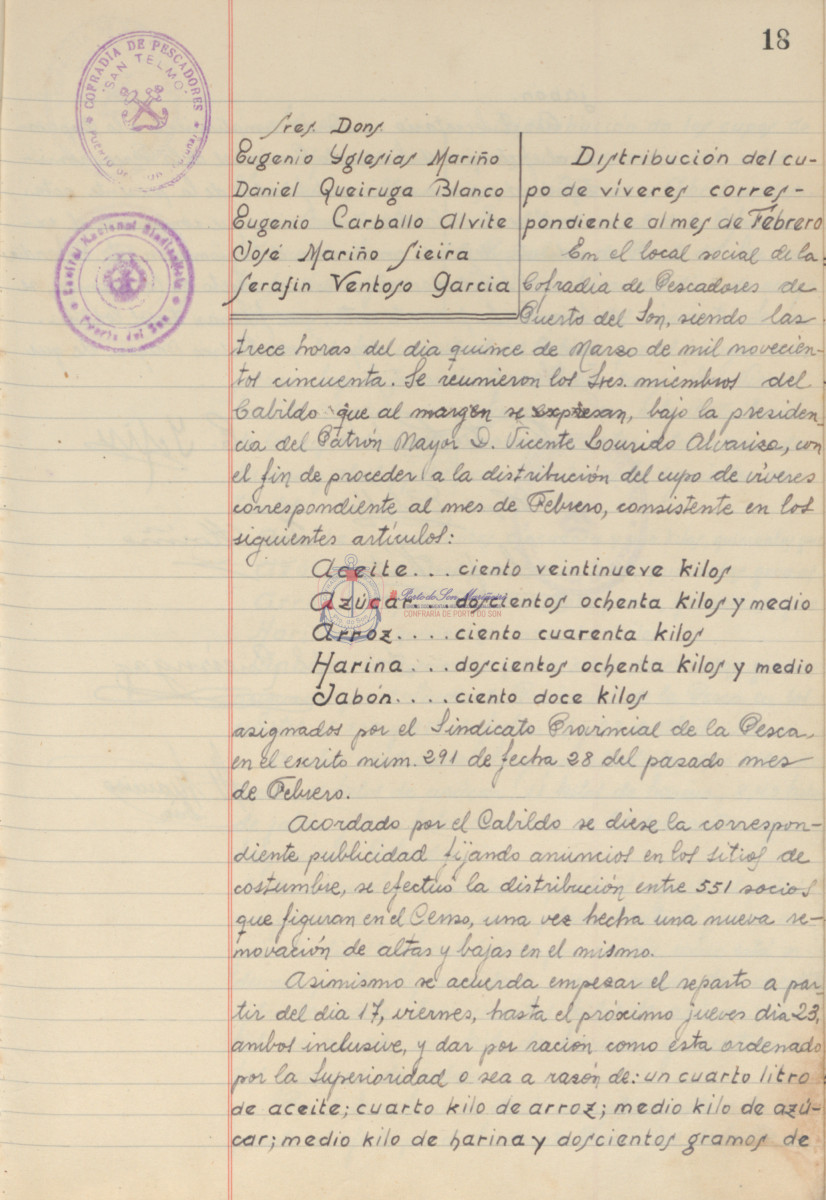 18
COFRADIA DE PESCADORES
"SAN TELMO"
Central Nacional Sindicalista
Puerto del Son
Sres. Dons
Eugenio Yglesias Mariño
Daniel Queiruga Blanco
Eugenio Carballo Alvite
José Mariño Sieira
Serafin Ventoso Garcia
Distribución del cu-
po de víveres corres-
pondiente al mes de Febrero
En el local social de la
Cofradia de Pescadores de
Puerto del Son, siendo las
trece horas del dia quince de Marzo de mil novecien-
tos cincuenta. Se reunieron los Sres. miembros del
Cabildo que al margen se expresan, bajo la presiden-
cia del Patrón Mayor D. Vicente Lourido Alvariza, con
el fin de proceder a la distribución del cupo de víveres
correspondiente al mes de Febrero, consistente en los
siguientes artículos:
Aceite... ciento veintinueve kilos
Azúcar... doscientos ochenta kilos y medio
Arroz.... ciento cuarenta kilos
Harina... doscientos ochenta kilos y medio
Jabón.... ciento doce kilos
Porto do Son
CONFRARÍA DE PORTO DO SON
asignados por el Sindicato Provincial de la Pesca,
en el escrito núm. 291 de fecha 28 del pasado mes
de Febrero.
Acordado por el Cabildo se diese la correspon-
diente publicidad fijando anuncios en los sitios de
costumbre, se efectuó la distribución entre 551 socios
que figuran en el Censo, una vez hecha una nueva re-
novación de altas y bajas en el mismo.
Asimismo se acuerda empezar el reparto a par-
tir del dia 17, viernes, hasta el próximo jueves dia 23,
ambos inclusive, y dar por ración como esta ordenado
por la Superioridad o sea a razón de: un cuarto litro
de aceite; cuarto kilo de arroz; medio kilo de azú-
car; medio kilo de harina y doscientos gramos de